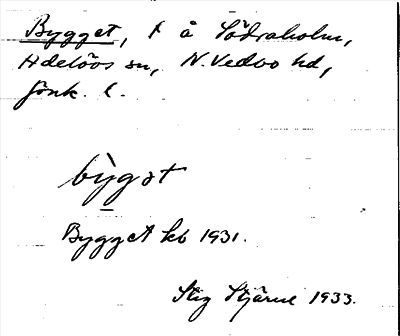 Bygget, t å Södraholm,
Adelövs sn, N. Vedbo hd,
Jönk. l.
bygət
Bygget kb 1931.
Stig Stjärne 1933.